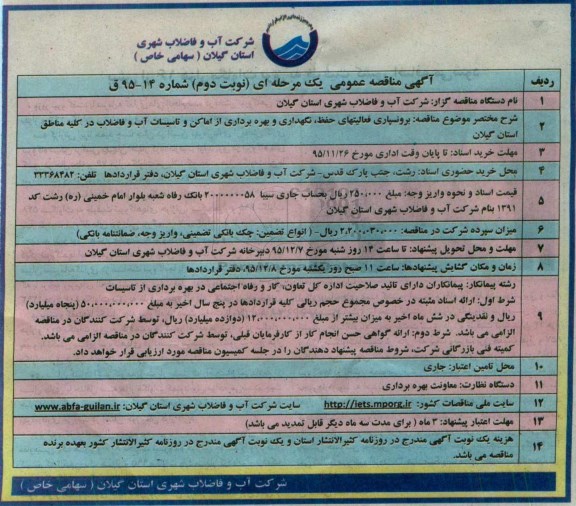 شرکت آب و فاضلاب شهری
استان گیلان ( سهامی خاص )
ردیف آگهی مناقصه عمومی یک مرحله ای (نوبت دوم) شماره ۱۴-۹۵ ق
۱ نام دستگاه مناقصه گزار: شرکت آب و فاضلاب شهری استان گیلان
۲ شرح مختصر موضوع مناقصه: برونسپاری فعالیتهای حفظ، نگهداری و بهره برداری از اماکن و تاسیسات آب و فاضلاب در کلیه مناطق
استان گیلان
۳ مهلت خرید اسناد: تا پایان وقت اداری مورخ ۹۵/۱۱/۲۶
۴ محل خرید حضوری اسناد: رشت، جنب پارک قدس- شرکت آب و فاضلاب شهری استان گیلان، دفتر قراردادها تلفن: ۳۳۳۶۸۴۸۲
۵ قیمت اسناد و نحوه واریز وجه: مبلغ ۲۵۰,۰۰۰ ریال بحساب جاری سیبا ۲۰۰۰۰۰۰۰۵۸ بانک رفاه شعبه بلوار امام خمینی (ره) رشت کد
۱۳۹۱ بنام شرکت آب و فاضلاب شهری استان گیلان
۶ میزان سپرده شرکت در مناقصه: ۲,۲۰۰,۰۳۰,۰۰۰ ریال- ( انواع تضمین: چک بانکی تضمینی، واریز وجه، ضمانتنامه بانکی)
۷ مهلت و محل تحویل پیشنهاد: تا ساعت ۱۴ روز شنبه مورخ ۹۵/۱۲/۷ دبیرخانه شرکت آب و فاضلاب شهری استان گیلان
۸ زمان و مکان گشایش پیشنهادها: ساعت ۱۱ صبح روز یکشنبه مورخ ۹۵/۱۲/۸، دفتر قراردادها
۹ رشته پیمانکار: پیمانکاران دارای تائید صلاحیت اداره کل تعاون، کار و رفاه اجتماعی در بهره برداری از تاسیسات
شرط اول: ارائه اسناد مثبته در خصوص مجموع حجم ریالی کلیه قراردادها در پنج سال اخیر به مبلغ ۵۰,۰۰۰,۰۰۰,۰۰۰ (پنجاه میلیارد)
ریال و نقدینگی در شش ماه اخیر به میزان بیشتر از مبلغ ۱۲,۰۰۰,۰۰۰,۰۰۰ (دوازده میلیارد) ریال، توسط شرکت کنندگان در مناقصه
الزامی می باشد. شرط دوم: ارائه گواهی حسن انجام کار از کارفرمایان قبلی، توسط شرکت کنندگان در مناقصه الزامی می باشد.
کمیته فنی بازرگانی شرکت، شروط مناقصه پیشنهاد دهندگان را در جلسه کمیسیون مناقصه مورد ارزیابی قرار خواهد داد.
۱۰ محل تامین اعتبار: جاری
۱۱ دستگاه نظارت: معاونت بهره برداری
۱۲ سایت ملی مناقصات کشور: http://iets.mporg.ir سایت شرکت آب و فاضلاب شهری استان گیلان: www.abfa-guilan.ir
۱۳ مهلت اعتبار پیشنهاد: ۳ ماه ( برای مدت سه ماه دیگر قابل تمدید می باشد)
۱۴ هزینه یک نوبت آگهی مندرج در روزنامه کثیرالانتشار استان و یک نوبت آگهی مندرج در روزنامه کثیرالانتشار کشور بعهده برنده
مناقصه می باشد.
شرکت آب و فاضلاب شهری استان گیلان ( سهامی خاص )